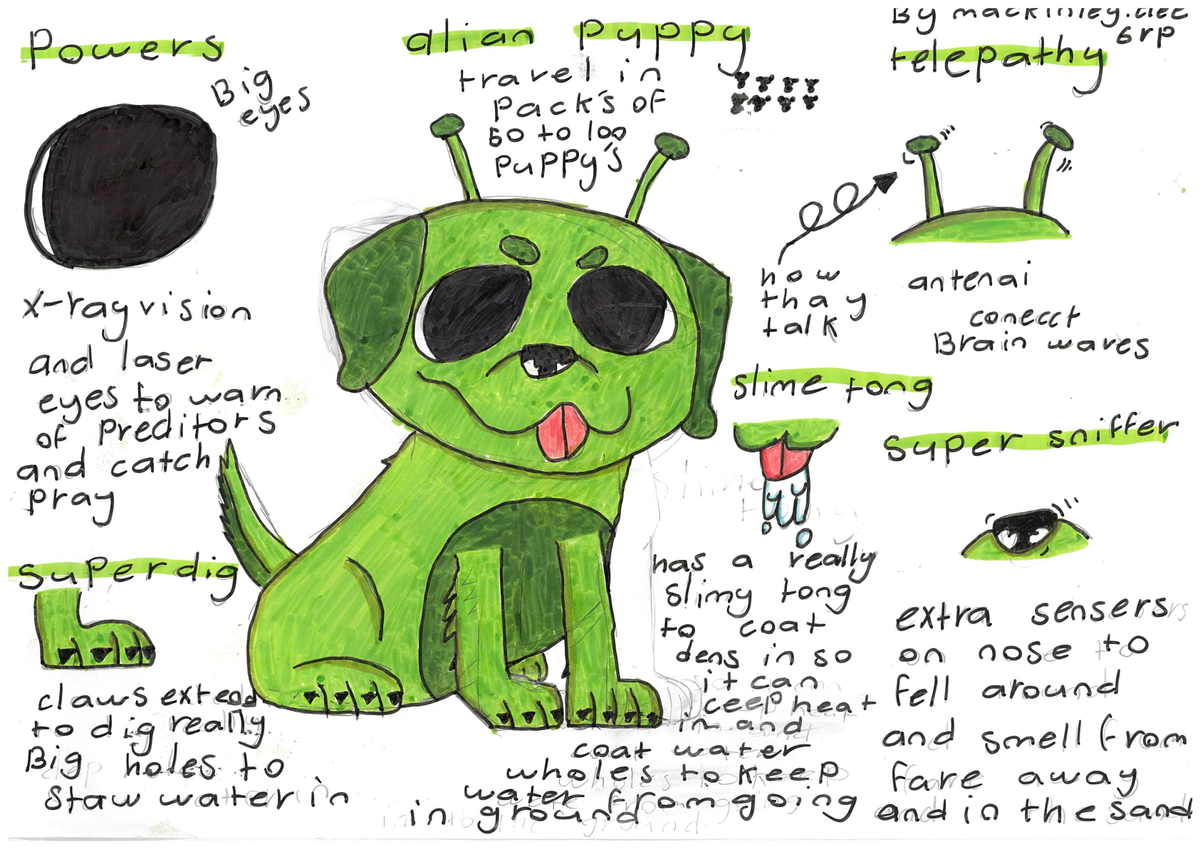 Powers
Big
eyes
X-ray vision
and laser
eyes to warn
of Preditors
and catch
pray
superdig
claws extend
to dig really
Big holes to
staw water in
alian puppy
travel in
pack's of
50 to 100
puppy's
By mackinley.
6rp
telepathy
how
thay
talk
antenai
conecct
Brain waves
slime tong
has a really
slimy tong
to coat
dens in so
it can
ceep heat
in and
coat water
wholes to keep
water from going
in ground
super sniffer
extra sensers
on nose to
fell around
and smell from
fare away
and in the sand